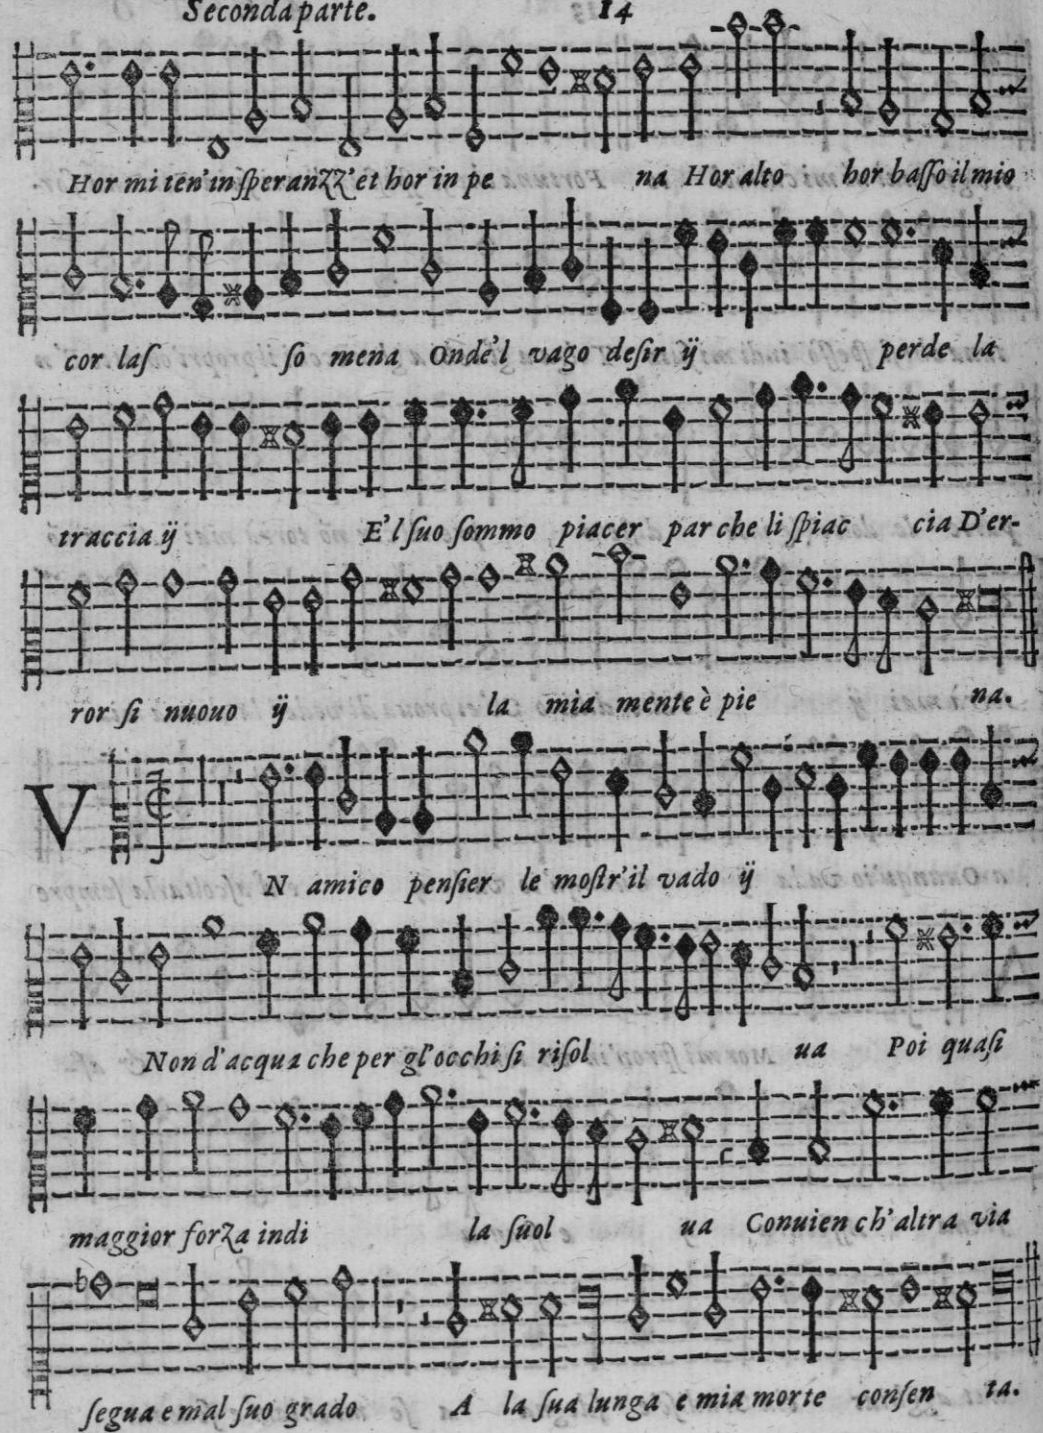 Seconda parte. 14
Hor mi ten' in ſperanZZ' et hor in pe na Hor alto hor baſſo il mio
cor laſ ſo mena Onde'l vago deſir ÿ perde la
traccia ÿ E'l ſuo ſommo piacer par che li ſpiac cia D'er-
ror ſi nuouo ÿ la mia mente è pie na.
V
N amico penſier le moſtr'il vado ÿ
Non d'acqua che per gl'occhi ſi riſol ua Poi quaſi
maggior forZa indi la ſuol ua Conuien ch'altra via
ſegua e mal ſuo grado A la ſua lunga e mia morte conſen ta.